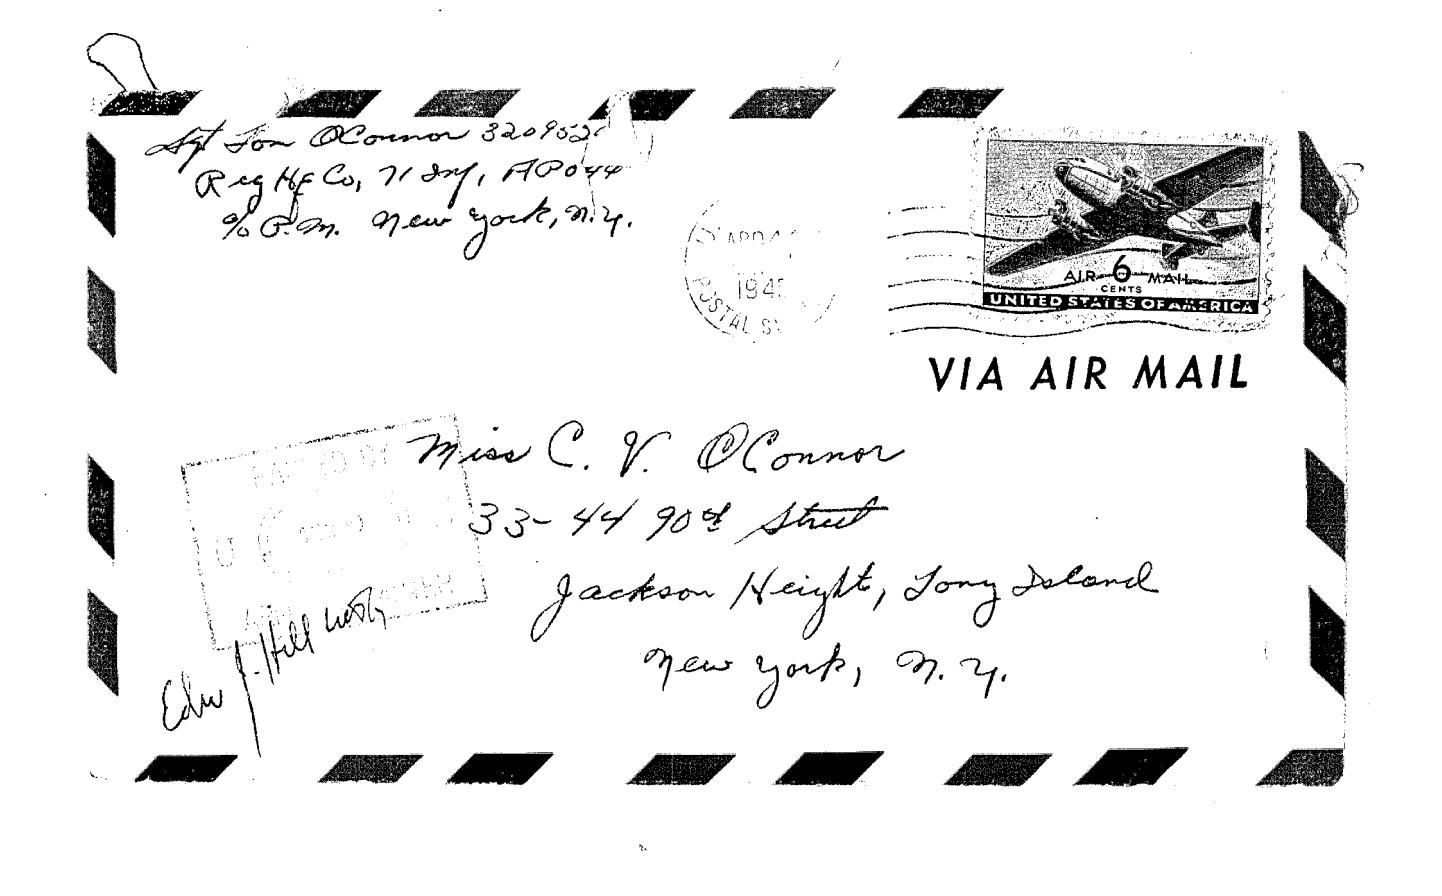 Sgt Tom O'Connor 3209520
Reg Hq Co, 71 Inf, APO 44
c/o P.M. New York, N.Y.
1945
POSTAL
AIR 6 MAIL
CENTS
UNITED STATES OF AMERICA
VIA AIR MAIL
Miss C. V. O'Connor
33-44 90th Street
Jackson Heights, Long Island
New York, N.Y.
PASSED BY
U
Edw J. Hill